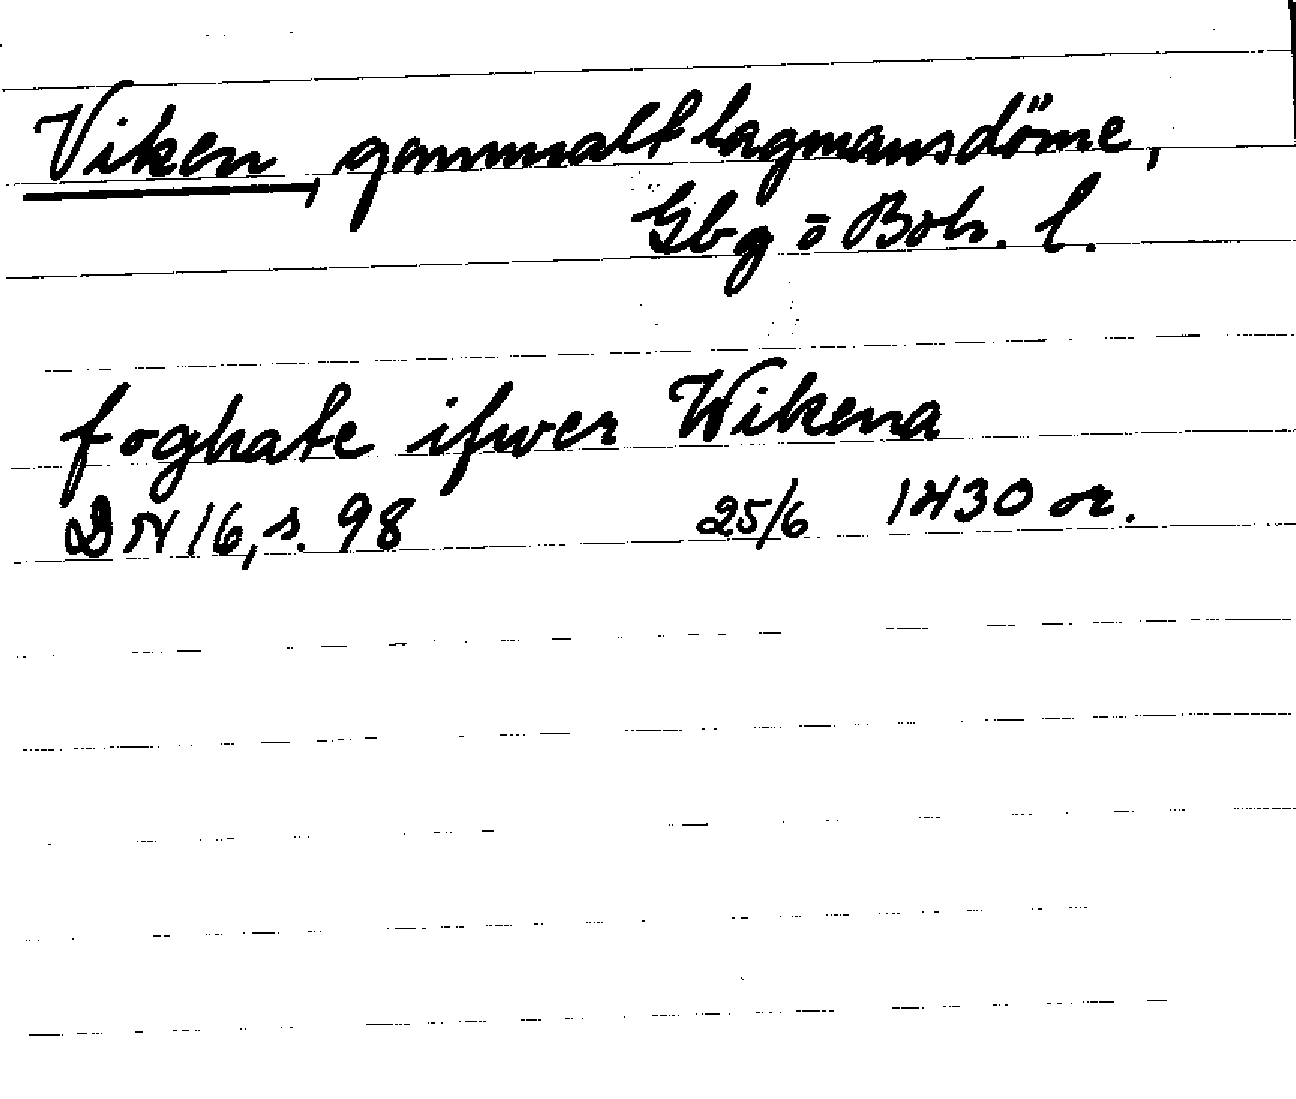 Viken, gammalt lagmansdöme,
Gbg o Boh. l.
foghate ifwer Wikena
DN 16, s. 98 25/6 1430 or.